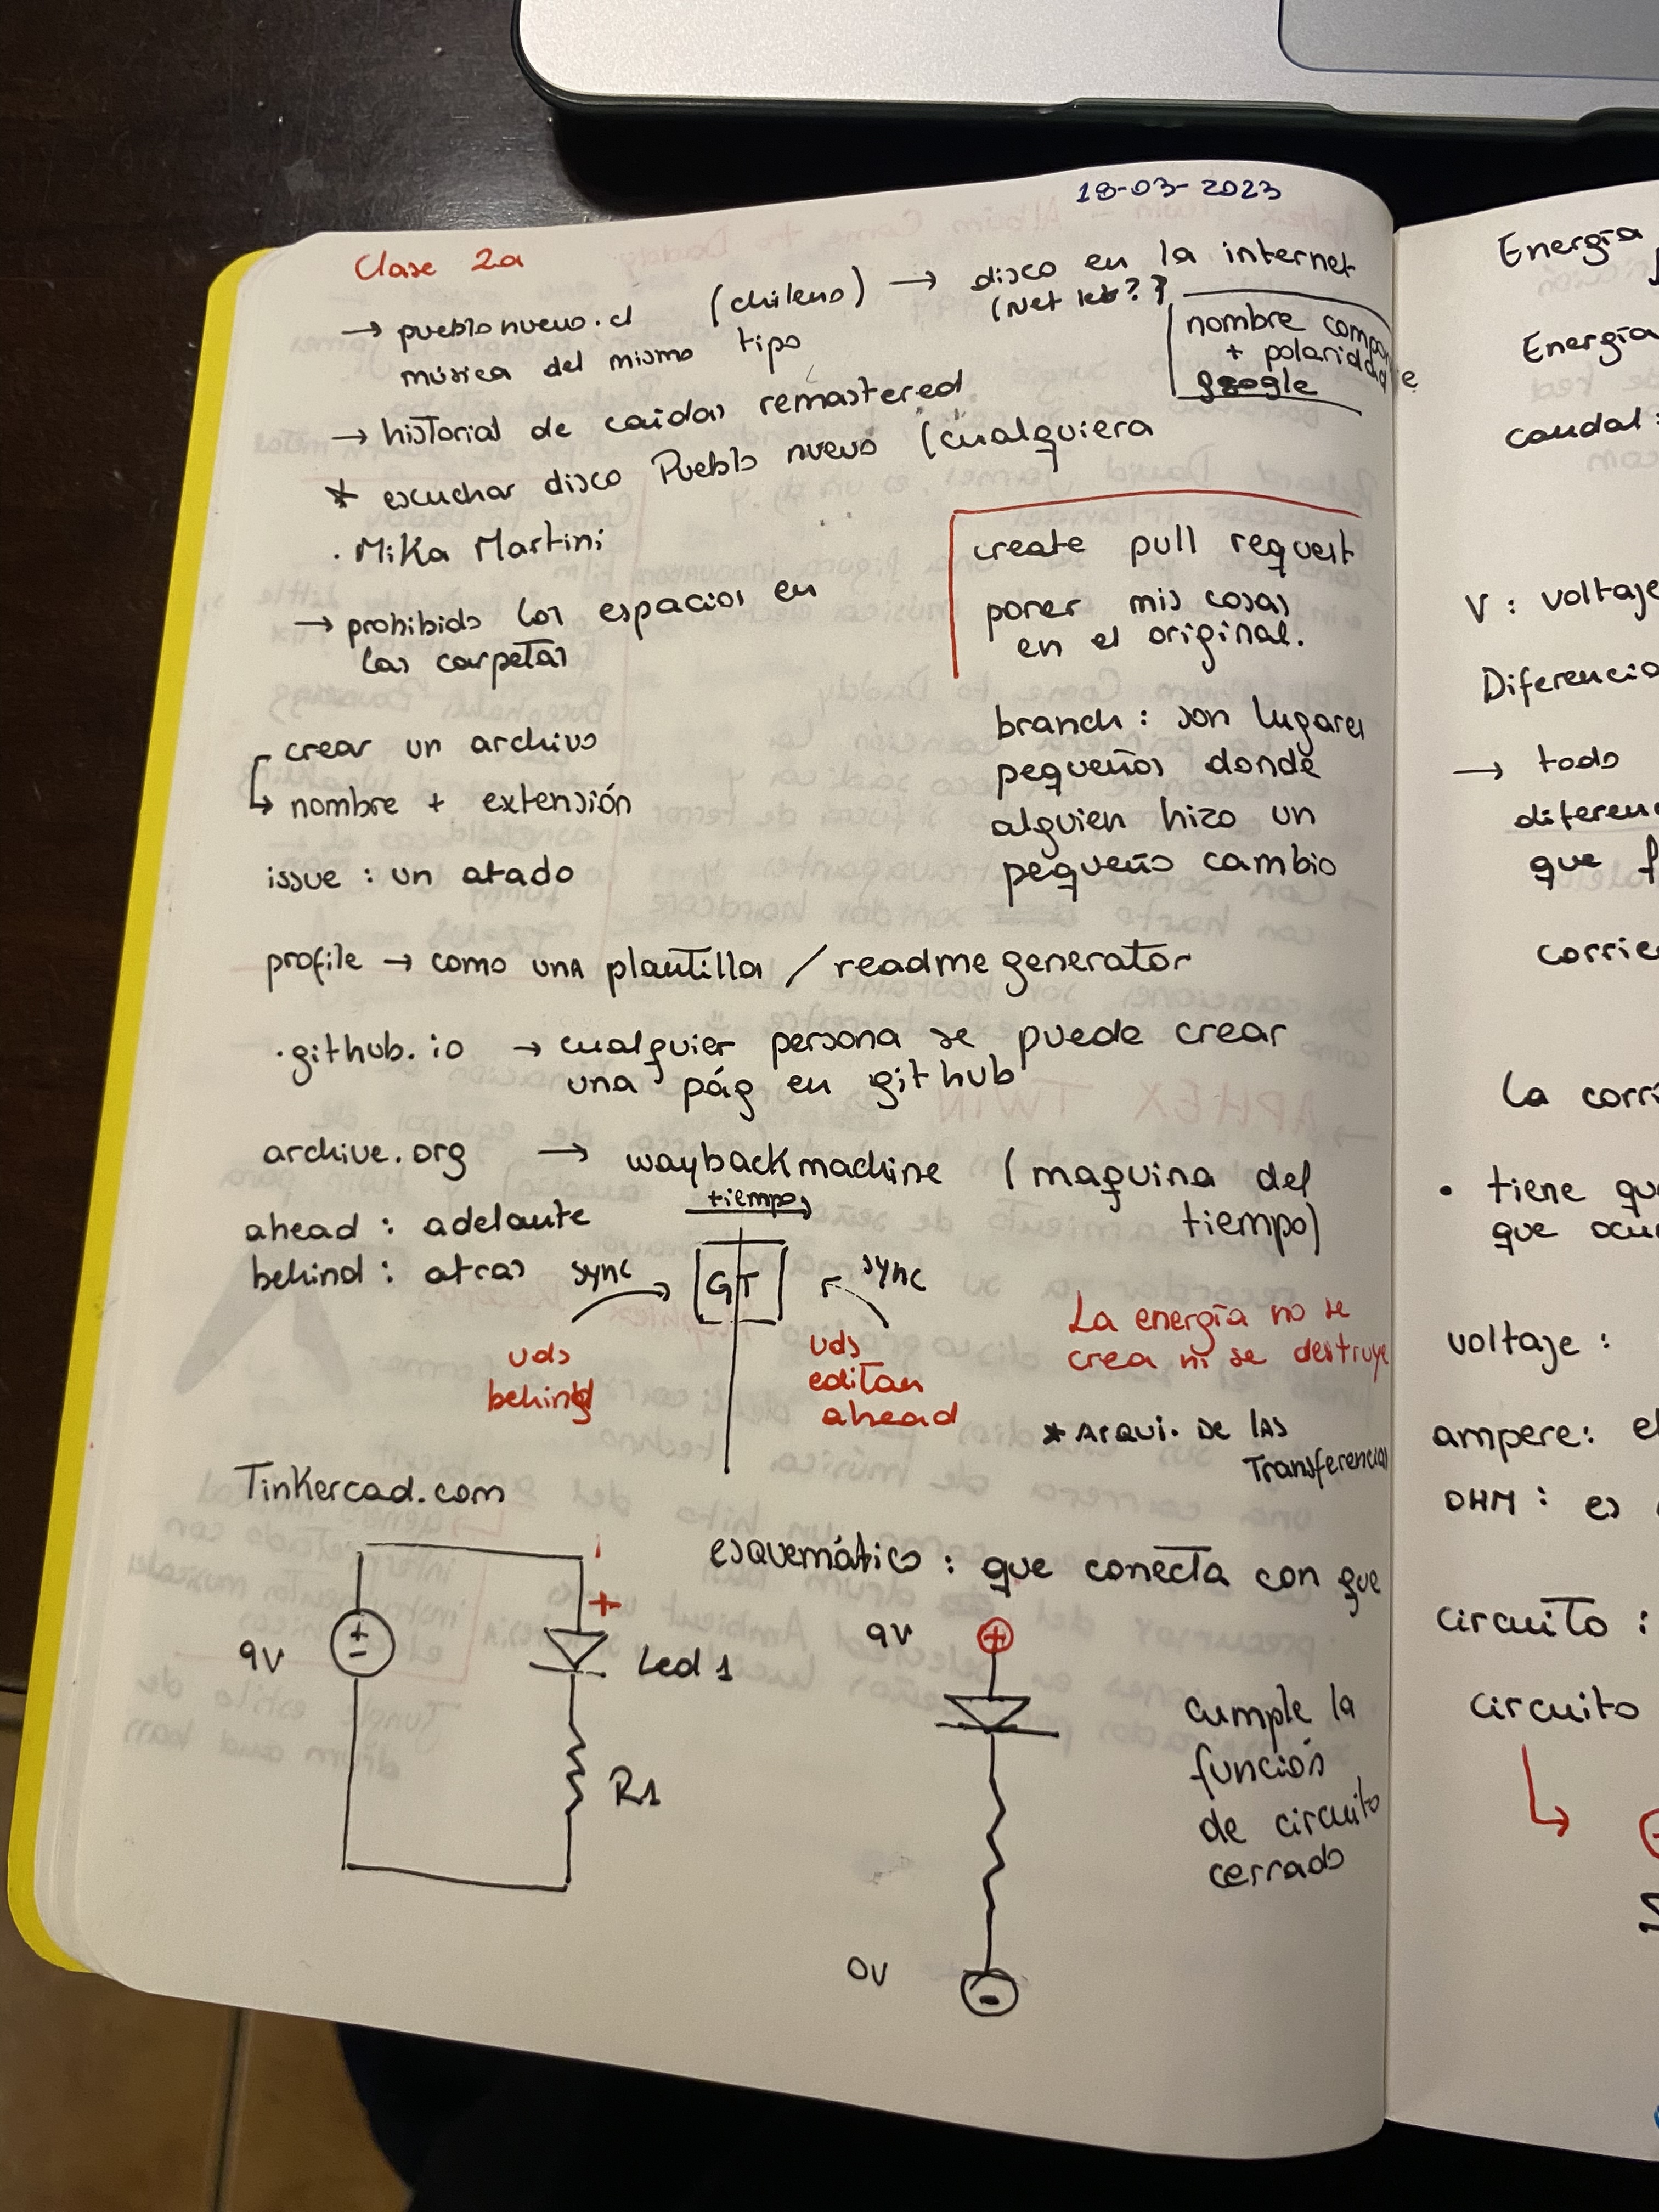 18-03-2023
Clase 2a
→ pueblonuevo.cl (chileno) → disco en la internet
(Net ??)
música del mismo tipo
nombre componente
+ polaridad
google
→ historial de caidas remastered
* escuchar disco Pueblo nuevo (cualquiera
· Mika Martini
→ prohibido los espacios en
las carpetas
create pull request
poner mis cosas
en el original.
crear un archivo
↳ nombre + extensión
branch : son lugares
pequeños donde
alguien hizo un
pequeño cambio
issue : un atado
profile → como una plantilla / readme generator
·github.io → cualquier persona se puede crear
una pág en github
archive.org → waybackmachine (maquina del
tiempo)
tiempo
ahead : adelante
behind : atras
sync → GT ← sync
uds
behind
uds
editan
ahead
La energía no se
crea ni se destruye
* Arqui. DE LAS
Transferencias
Tinkercad.com
esquemático : que conecta con que
+
9V
+
-
Led 1
R1
9V
+
cumple la
función
de circuito
cerrado
0V
-
Energía
Energía
caudal :
V : voltaje
Diferencia
→ todo
que
La
• tiene
que
voltaje :
ampere:
OHM : es
circuito :
circuito